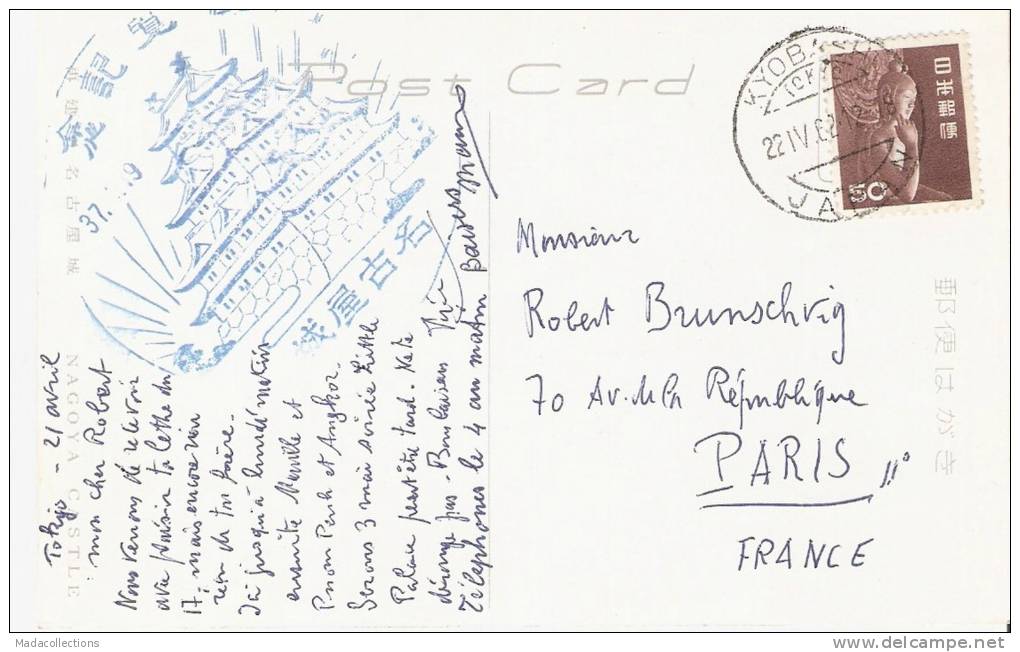 Post Card
記 覧
名古屋城
37. .19
名古屋城
NAGOYA CASTLE
Tokyo - 21 avril
mon cher Robert
Nous venons de recevoir
avec plaisir ta lettre du
17, mais encore rien
rien de ton frère.
jusqu'à lundi matin
ensuite Manille et
Pnom Penh et Angkor.
Serons 3 mai soirée Little
Palace peut être tard. Ne te
dérange pas - Bons baisers
Téléphones le 4 au matin Baisers
KYOBASHI
TOKYO
22 IV 62
JAPAN
日本郵便
50
Monsieur
Robert Brunschvig
70 Av. de la République
PARIS 11°
FRANCE
郵便はがき
Madacollections
www.delcampe.net